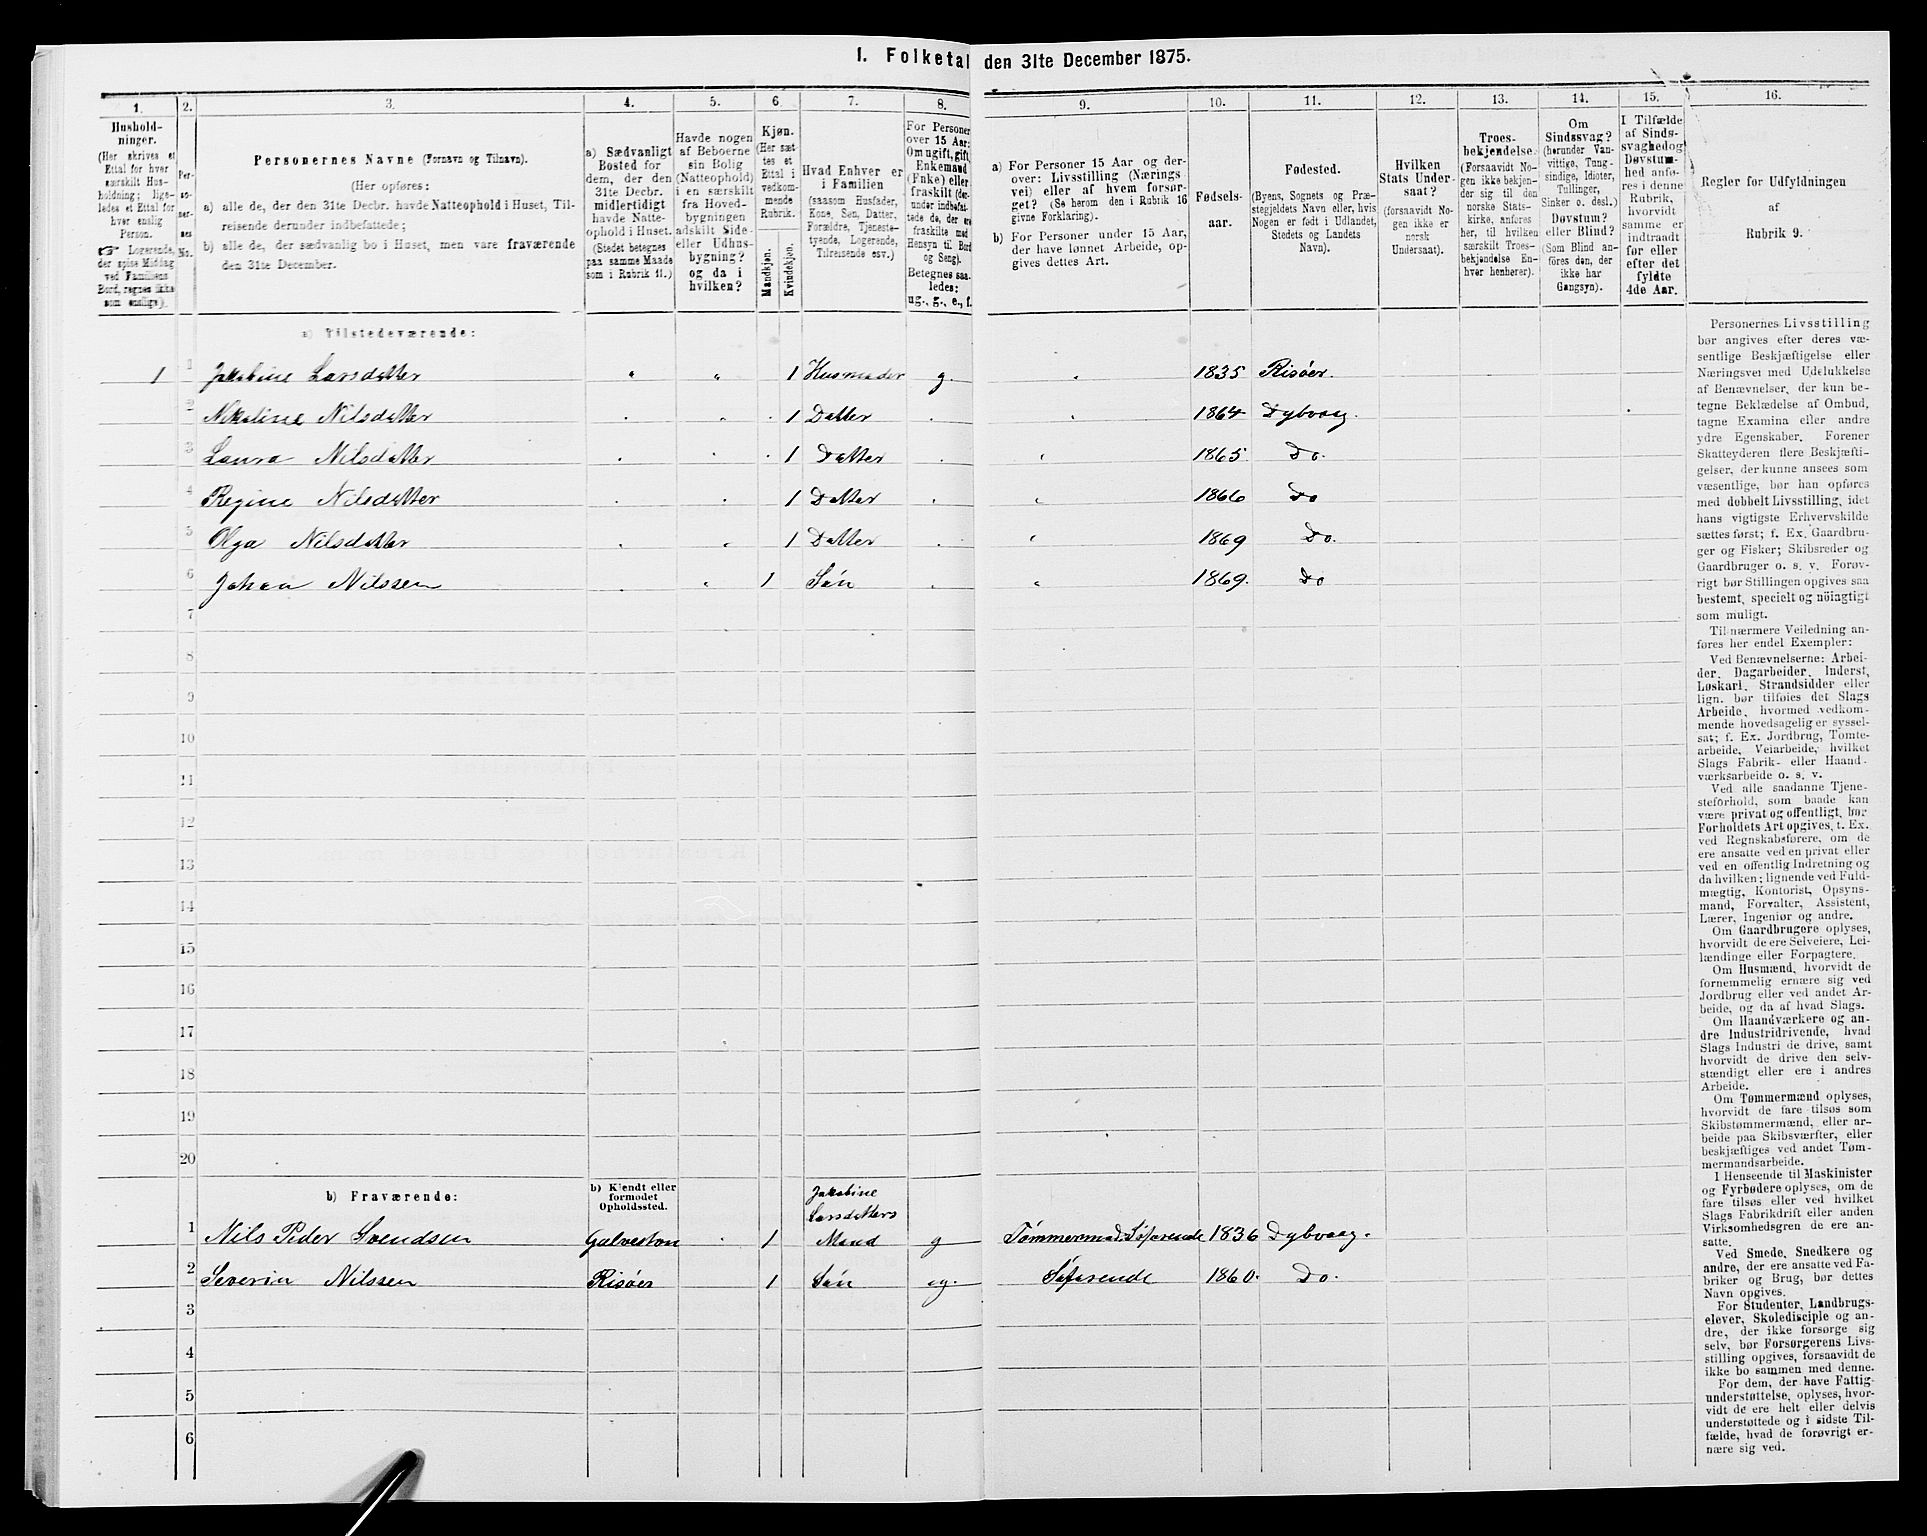 1. Folketal den 31te December 1875.
1. 2. 3. 4. 5. 6. 7. 8. 9. 10. 11. 12. 13. 14. 15. 16.
Hushold-
ninger.
(Her skrives et
Ettal for hver
særskilt Hus-
holdning; lige-
ledes et Ettal for
hver enslig
Person.
☞ Logerende,
der spise Middag
ved Familiens
Bord, regnes ikke
som enslige).
Per-
so-
ner-
nes
No.
Personernes Navne (Fornavn og Tilnavn).
(Her opføres:
a) alle de, der den 31te Decbr. havde Natteophold i Huset, Til-
reisende derunder indbefattede;
b) alle de, der sædvanlig bo i Huset, men vare fraværende
den 31te December.
a) Sædvanligt
Bosted for
dem, der den
31te Decbr.
midlertidigt
havde Natte-
ophold i Huset.
(Stedet betegnes
paa samme Maade
som i Rubrik 11.)
Havde nogen
af Beboerne
sin Bolig
(Natteophold)
i en særskilt
fra Hoved-
bygningen
adskilt Side-
eller Udhus-
bygning?
og da i
hvilken?
Kjøn.
(Her sæt-
tes et
Ettal i
vedkom-
mende
Rubrik.
Mandkjøn.
Kvindekjøn.
Hvad Enhver er
i Familien
(saasom Husfader,
Kone, Søn, Datter,
Forældre, Tjeneste-
tyende, Logerende,
Tilreisende osv.)
For Personer
over 15 Aar:
Om ugift, gift,
Enkemand
(Enke) eller
fraskilt (der-
under indbefat-
tede de, der ere
fraskilte med
Hensyn til Bord
og Seng).
Betegnes saa-
ledes:
ug., g., e., f.
a) For Personer 15 Aar og der-
over: Livsstilling (Nærings
vei) eller af hvem forsør-
get? (Se herom den i Rubrik 16
givne Forklaring).
b) For Personer under 15 Aar,
der have lønnet Arbeide, op-
gives dettes Art.
Fødsels-
aar.
Fødested.
(Byens, Sognets og Præ-
stegjeldets Navn eller, hvis
Nogen er født i Udlandet,
Stedets og Landets
Navn).
Hvilken
Stats Under-
saat?
(forsaavidt No-
gen ikke er
norsk
Undersaat).
Troes-
bekjendelse.
(Forsaavidt No-
gen ikke bekjen-
der sig til den
norske Stats-
kirke, anføres
her, til hvilken
særskilt Troes-
bekjendelse En-
hver henhører).
Om
Sindssvag?
(herunder Van-
vittige, Tung-
sindige, Idioter,
Tullinger,
Sinker o. desl.)
Døvstum?
eller Blind?
(Som Blind an-
føres den, der
ikke har
Gangsyn).
I Tilfælde
af Sinds-
svaghed og
Døvstum-
hed anfø-
res i denne
Rubrik,
hvorvidt
samme er
indtraadt
før eller
efter det
fyldte
4de Aar.
Regler for Udfyldningen
af
Rubrik 9.
a) Tilstedeværende:
1 1 Jakobine Larsdatter " " 1 Husmoder g. " 1835 Risøer.
2 Nikoline Nilsdatter 1 Datter 1864 Dybvaag.
3 Laura Nilsdatter 1 Datter 1865 Do.
4 Regine Nilsdatter 1 Datter 1866 Do
5 Olga Nilsdatter 1 Datter 1869 Do.
6 Johan Nilssen 1 Søn 1869. Do
7
8
9
10
11
12
13
14
15
16
17
18
19
20
b) Fraværende:
b) Kjendt eller
formodet
Opholdssted.
Jakobine
Larsdatters
1 Nils Peder Svendsen Galveston 1 Mand g Tømmermand. Søfarende 1836 Dybvaag.
2 Severin Nilssen Risøer 1 Søn ug. Søfarende 1860. Do.
3
4
5
6
Personernes Livsstilling
bør angives efter deres væ-
sentlige Beskjæftigelse eller
Næringsvei med Udelukkelse
af Benævnelser, der kun be-
tegne Beklædelse af Ombud,
tagne Examina eller andre
ydre Egenskaber. Forener
Skatteyderen flere Beskjæfti-
gelser, der kunne ansees som
væsentlige, bør han opføres
med dobbelt Livsstilling, idet
hans vigtigste Erhvervskilde
sættes først; f. Ex. Gaardbru-
ger og Fisker; Skibsreder og
Gaardbruger o. s. v. Forøv-
rigt bør Stillingen opgives saa
bestemt, specielt og nöiagtigt
som muligt.
Til nærmere Veiledning an-
føres her endel Exempler:
Ved Benævnelserne: Arbei-
der, Dagarbeider, Inderst,
Løskarl, Strandsidder eller
lign. bør tilføies det Slags
Arbeide, hvormed vedkom-
mende hovedsagelig er syssel-
sat; f. Ex. Jordbrug, Tomte-
arbeide, Veiarbeide, hvilket
Slags Fabrik- eller Haand-
værksarbeide o. s. v.
Ved alle saadanne Tjene-
steforhold, som baade kan
være privat og offentligt, bør
Forholdets Art opgives, t. Ex.
ved Regnskabsførere, om de
ere ansatte ved en privat eller
ved en offentlig Indretning og
da hvilken; lignende ved Fuld-
mægtig, Kontorist, Opsyns-
mand, Forvalter, Assistent,
Lærer, Ingeniør og andre.
Om Gaardbrugere oplyses,
hvorvidt de ere Selveiere, Lei-
lændinge eller Forpagtere.
Om Husmænd, hvorvidt de
fornemmelig ernære sig ved
Jordbrug eller ved andet Ar-
beide, og da af hvad Slags.
Om Haandværkere og an-
dre Industridrivende, hvad
Slags Industri de drive, samt
hvorvidt de drive den selv-
stændigt eller ere i andres
Arbeide.
Om Tømmermænd oplyses,
hvorvidt de fare tilsøs som
Skibstømmermænd, eller ar-
beide paa Skibsværfter, eller
beskjæftiges ved andet Tøm-
mermandsarbeide.
I Henseende til Maskinister
og Fyrbødere oplyses, om de
fare tilsøs eller ved hvilket
Slags Fabrikdrift eller anden
Virksomhedsgren de ere an-
satte.
Ved Smede, Snedkere og
andre, der ere ansatte ved Fa-
briker og Brug, bør dettes
Navn opgives.
For Studenter, Landbrugs-
elever, Skoledisciple og an-
dre, der ikke forsørge sig
selv, bør Forsørgerens Livs-
stilling opgives, forsaavidt de
ikke bo sammen med denne.
For dem, der have Fattig-
understøttelse, oplyses, hvor-
vidt de ere helt eller delvis
understøttede og i sidste Til-
fælde, hvad de forøvrigt er-
nære sig ved.